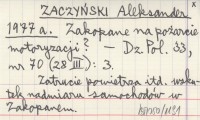 ZACZYŃSKI Aleksander
1977 a. Zakopane na pożarcie
motoryzacji? — Dz. Pol. 33,
nr 70 (28 III): 3.
Zatrucie powietrza itd. wsku-
tek nadmiaru samochodów w
Zakopanem.